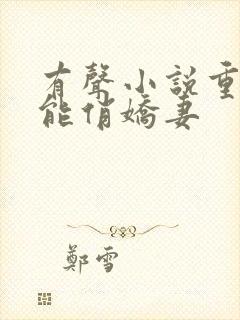 有聲小說重
能俏嬌妻
鄭雪